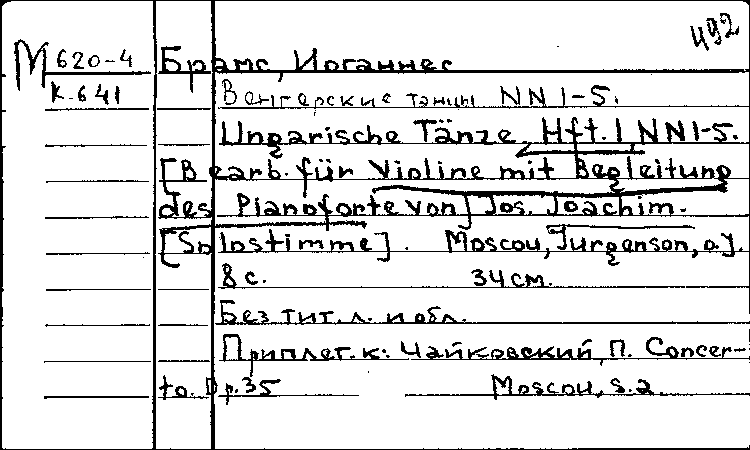 492
М 620-4
К-641
Брамс, Иоганнес
Венгерские танцы NN 1-5.
Ungarische Tänze, Hft. 1, NN 1-5.
[Bearb. für Violine mit Begleitung
des Pianoforte von] Jos. Joachim.
[Solostimme]. Moscou, Jurgenson, o.J.
8 с. 34 см.
Без тит. л. и обл.
Приплет. к: Чайковский, П. Concer-
to. Op. 35 Moscou, s.a.